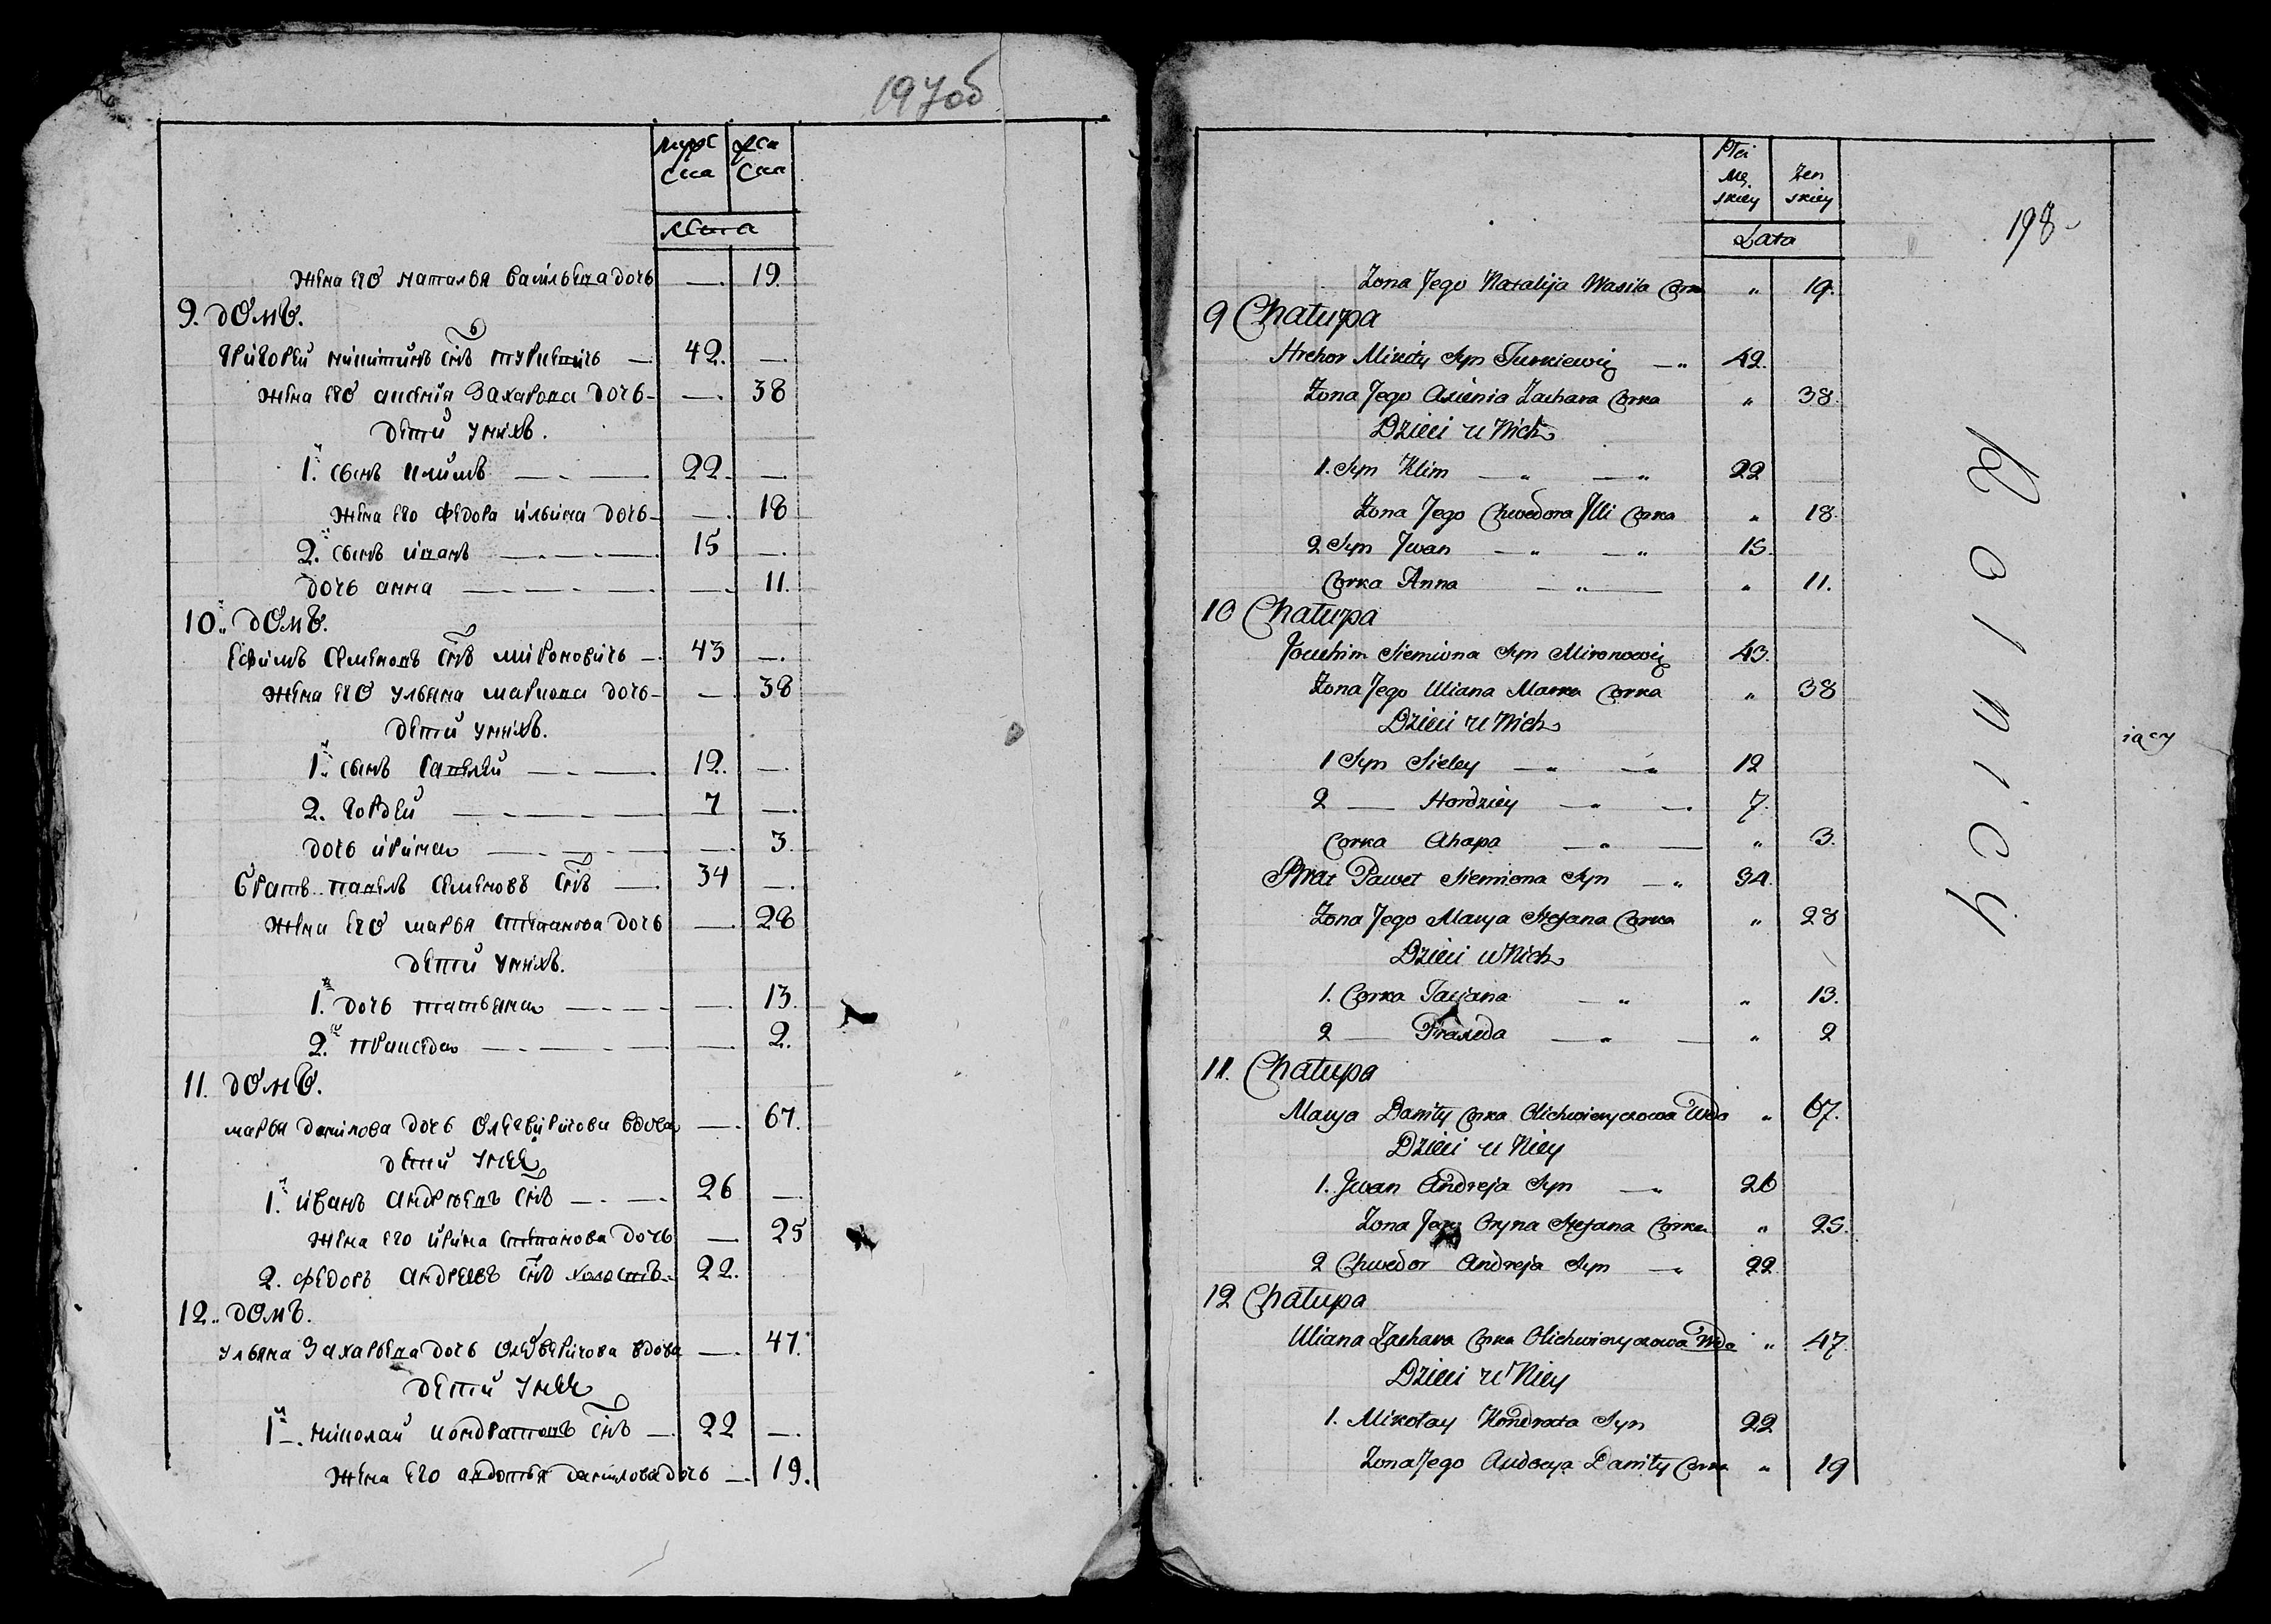 197об
муж
ска
жен
ска
лѣта
жена его наталья васильева дочь — 19.
9. домъ.
григорей микитинъ снъ туркевичь — 42. —
жена его аксения Захарова дочь — 38
дети у нихъ.
1.й сынъ климъ — 22. —
жена его федора ильина дочь — 18
2.й сынъ иванъ — 15 —
дочь анна — 11.
10.й домъ.
ефимъ семеновъ снъ мироновичь — 43 —
жена его ульяна маркова дочь — 38
дети у нихъ.
1.й сынъ савелей — 12. —
2. гордей — 7 —
дочь ирина — 3
братъ павелъ семеновъ снъ — 34 —
жена его марья степанова дочь — 28
дети у нихъ.
1.я дочь татьяна — 13.
2.я пракседа — 2.
11. домъ.
марья данилова дочь олехвирчова вдова — 67.
дети у нее
1.й иванъ андреевъ снъ — 26 —
жена его ирина степанова дочь — 25
2. федоръ андреевъ снъ холостъ — 22.
12. домъ.
ульяна Захарьева дочь олехверчова вдова — 47.
дети у нее
1.й николай кондратовъ снъ — 22 —
жена его авдотья данилова дочь — 19.
198
Płci
Mę
skiey
Żen
skiey
Lata
Żona Jego Natalija Wasila Corka " 19.
9 Chałupa
Hrehor Mikity Syn Turkiewicz — " 42.
Żona Jego Axienia Zachara Corka " 38.
Dzieci u Nich
1. Syn Klim — " — " 22
Żona Jego Chwedora Illi Corka " 18.
2 Syn Jwan — " — " 15.
Corka Anna — " — " 11.
10 Chałupa
Jouchim Siemiona Syn Mironowicz 43.
Żona Jego Uliana Marka Corka " 38
Dzieci u Nich
1 Syn Sieley — " — " 12
2 — Hordziey — " — 7.
Corka Ahapa — " — " 3.
Brat Paweł Siemiona Syn — " 34.
Żona Jego Marya Stefana Corka " 28
Dzieci u Nich
1. Corka Tacjana — " " 13.
2 — Praxeda — " — " 2
11. Chałupa
Marya Daniły Corka Olichwierczowa Wdo " 67.
Dzieci u Niey
1. Jwan Andreja Syn — " 26
Żona Jego Oryna Stefana Corka " 25.
2 Chwedor Andreja Syn — " 22
12 Chałupa
Uliana Zachara Corka Olichwierczowa Wdo " 47.
Dzieci u Niey
1. Mikołay Kondrata Syn 22
Żona Jego Audocya Daniły Corka " 19
Rolnicy
iący